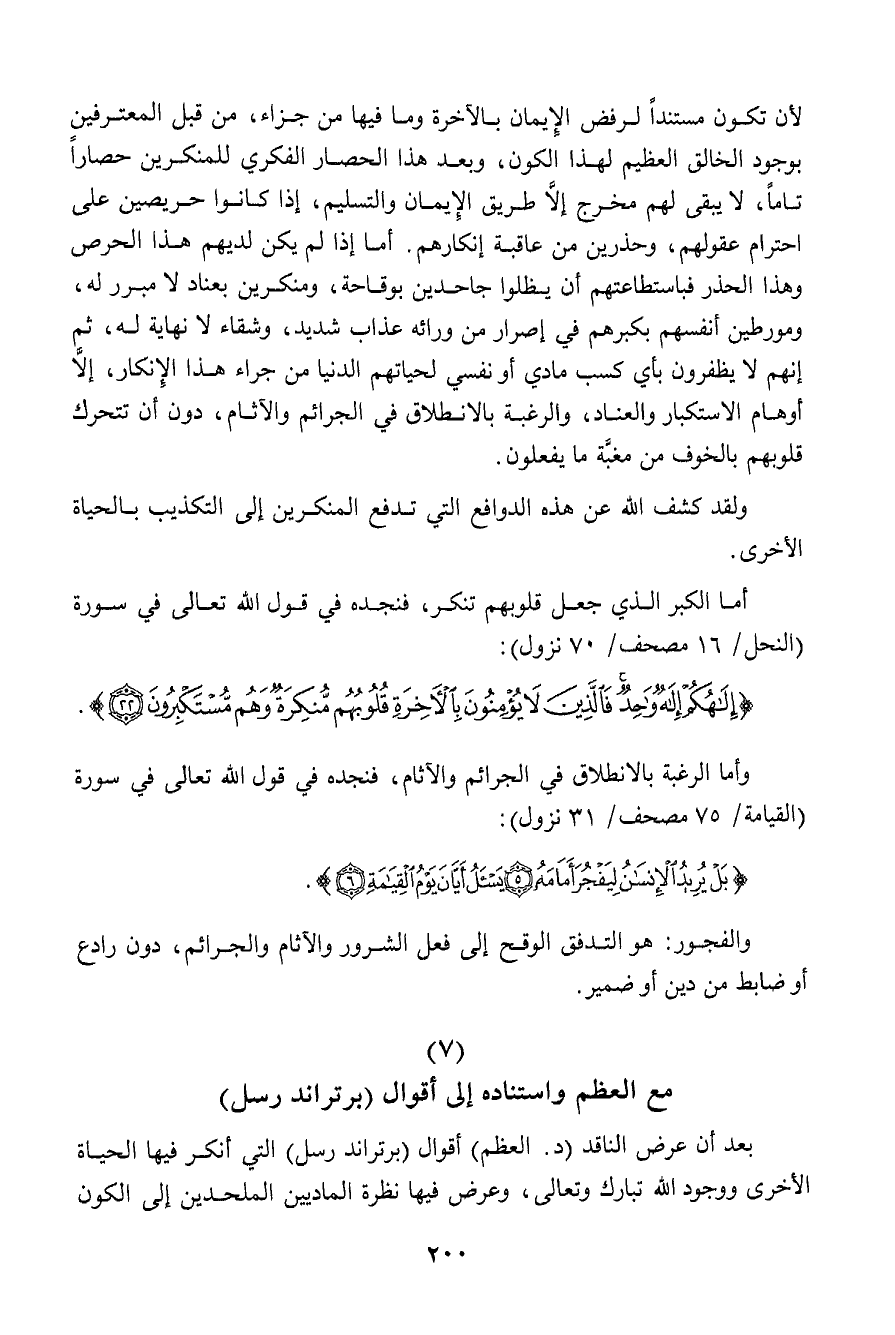 لأن تكون مستنداً لرفض الإيمان بالآخرة وما فيها من جزاء، من قبل المعترفين
بوجود الخالق العظيم لهذا الكون، وبعد هذا الحصار الفكري للمنكرين حصاراً
تاماً، لا يبقى لهم مخرج إلاَّ طريق الإيمان والتسليم، إذا كانوا حريصين على
احترام عقولهم، وحذرين من عاقبة إنكارهم. أما إذا لم يكن لديهم هذا الحرص
وهذا الحذر فباستطاعتهم أن يظلوا جاحدين بوقاحة، ومنكرين بعناد لا مبرر له،
ومورطين أنفسهم بكبرهم في إصرار من ورائه عذاب شديد، وشقاء لا نهاية له، ثم
إنهم لا يظفرون بأي كسب مادي أو نفسي لحياتهم الدنيا من جراء هذا الإنكار، إلاَّ
أوهام الاستكبار والعناد، والرغبة بالانطلاق في الجرائم والآثام، دون أن تتحرك
قلوبهم بالخوف من مغبَّة ما يفعلون.
ولقد كشف الله عن هذه الدوافع التي تدفع المنكرين إلى التكذيب بالحياة
الأخرى.
أما الكبر الذي جعل قلوبهم تنكر، فنجده في قول الله تعالى في سورة
(النحل/ ١٦ مصحف/ ٧٠ نزول):
﴿إِلَٰهُكُمْ إِلَٰهٌ وَٰحِدٌ فَٱلَّذِينَ لَا يُؤْمِنُونَ بِٱلْآخِرَةِ قُلُوبُهُم مُّنكِرَةٌ وَهُم مُّسْتَكْبِرُونَ ٢٢﴾.
وأما الرغبة بالانطلاق في الجرائم والآثام، فنجده في قول الله تعالى في سورة
(القيامة/ ٧٥ مصحف/ ٣١ نزول):
﴿بَلْ يُرِيدُ ٱلْإِنسَٰنُ لِيَفْجُرَ أَمَامَهُ ٥ يَسْـَٔلُ أَيَّانَ يَوْمُ ٱلْقِيَٰمَةِ ٦﴾.
والفجور: هو التدفق الوقح إلى فعل الشرور والآثام والجرائم، دون رادع
أو ضابط من دين أو ضمير.
(٧)
مع العظم واستناده إلى أقوال (برتراند رسل)
بعد أن عرض الناقد (د. العظم) أقوال (برتراند رسل) التي أنكر فيها الحياة
الأخرى ووجود الله تبارك وتعالى، وعرض فيها نظرة الماديين الملحدين إلى الكون
٢٠٠